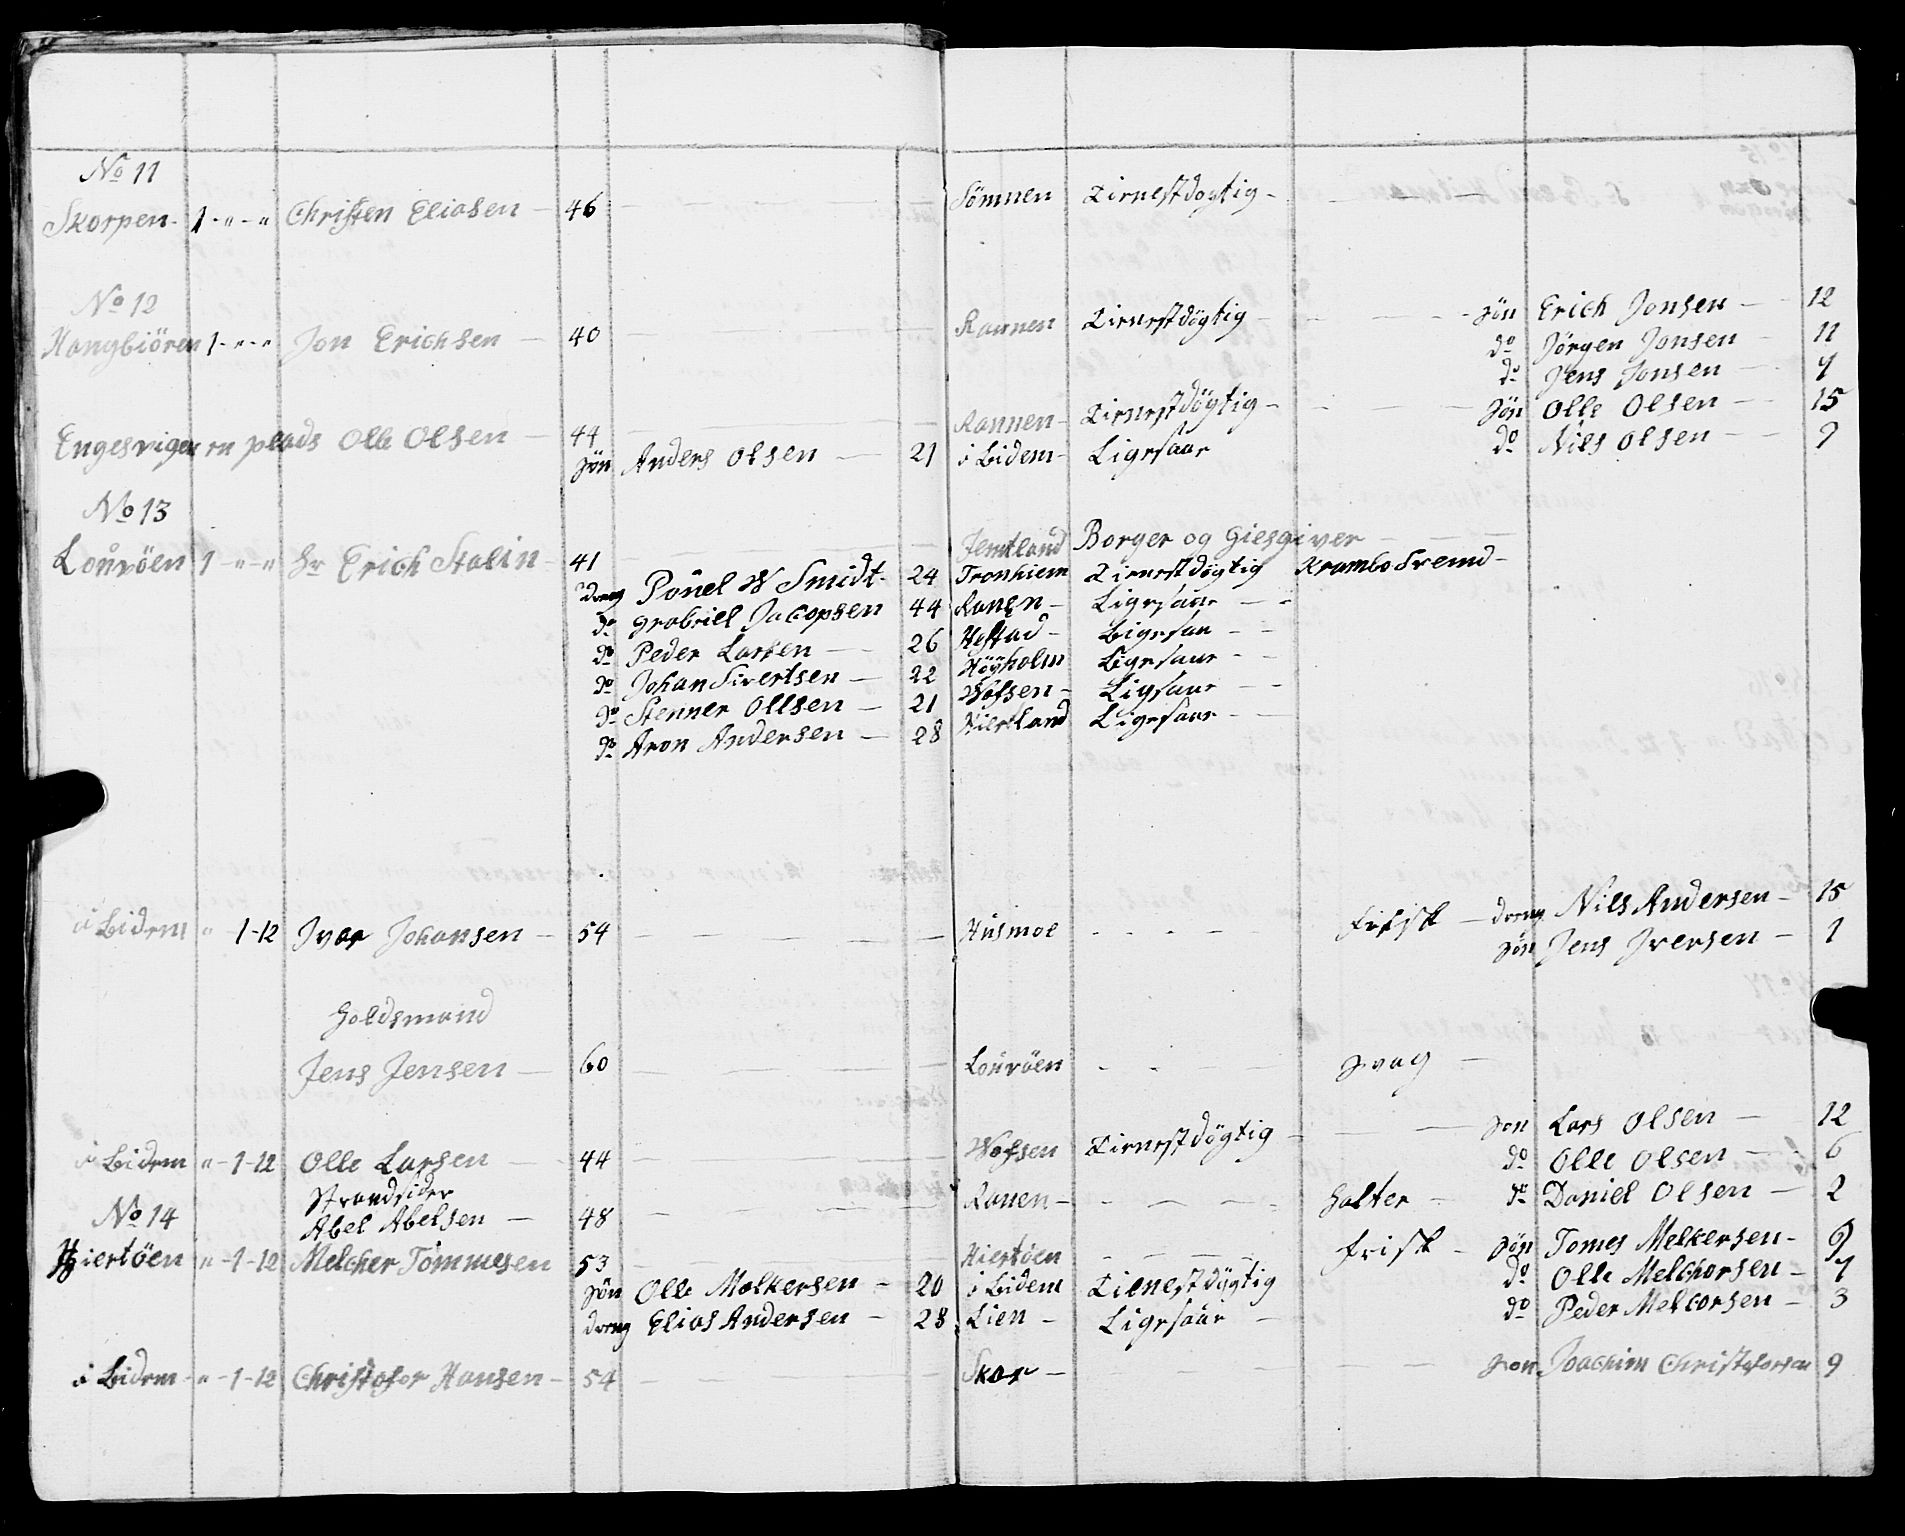 No 11
Skorpen - 1 - " - " Christen Eliasen - 46 Sömnen Tienestdogtig -
No 12
Hangbiören 1 - " - " Jon Erichsen - 40 Rannen Tienestdögtig - Sön Erich Jonsen - 12
do Jörgen Jonsen - 11
do Jens Jonsen - 7
Engesvigen en plads Olle Olsen - 44 Rannen - Tienestdögtig - Sön Olle Olsen - 15
Sön Anders Olsen - 21 i Bidem - Ligesaar do Nils Olsen - 9
No 13
Louröen 1 - " - " Hr Erich Stalin - 41 Jemtland Borger og Giesgiver
Dreng Pönel W Smidt - 24 Tronhiem Tienestdögtig Krambosvend -
do Grabriel Jacopsen 44 Ranen - Ligesaar -
do Peder Larsen - 26 Hestad - Ligesaa -
do Johan Sivertsen - 22 Höyholm Ligesaar -
do Stenner Ollsen - 21 Wefsen - Ligsaar -
do Aron Andersen - 28 Hiertland Ligesaar -
i Bidem " - 1-12 Ivar Johansen - 54 Husmoe Frisk - Dreng Nils Andersen - 15
Sön Jens Iversen - 1
Holdsmand
Jens Jensen - 60 Louröen Svag -
i Bidem " - 1-12 Olle Larsen - 44 Wefsen Tienestdögtig - Sön Lars Olsen - 12
do Olle Olsen - 6
Strandsider
No 14 Abel Abelsen - 48 Ranen - Halter - do Daniel Olsen - 2
Hiertöen " - 1-12 Melcher Tömmesen 53 Hiertöen Frisk - Sön Tomes Melkersen - 9
Sön Olle Melkersen - 20 i Bidem Tienestdygtig do Olle Melchorsen - 7
dreng Elias Andersen - 28 Lien - Ligesaar - do Peder Melcorsen - 3
i Bidem - " - 1-12 Christofer Hansen - 54 Skar - Sön Joachim Christofersen 9